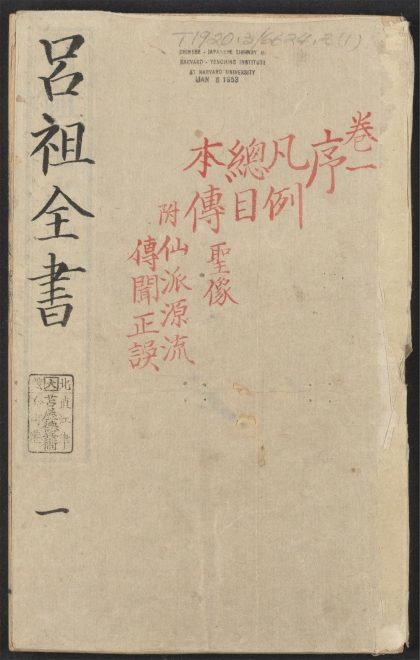 T1920.3/6624.2(1)
CHINESE - JAPANESE LIBRARY
HARVARD - YENCHING INSTITUTE
AT HARVARD UNIVERSITY
JAN 8 1953
卷一
序
凡例
總目
本傳 聖像
附仙派源流
傳聞正誤
呂祖全書
一